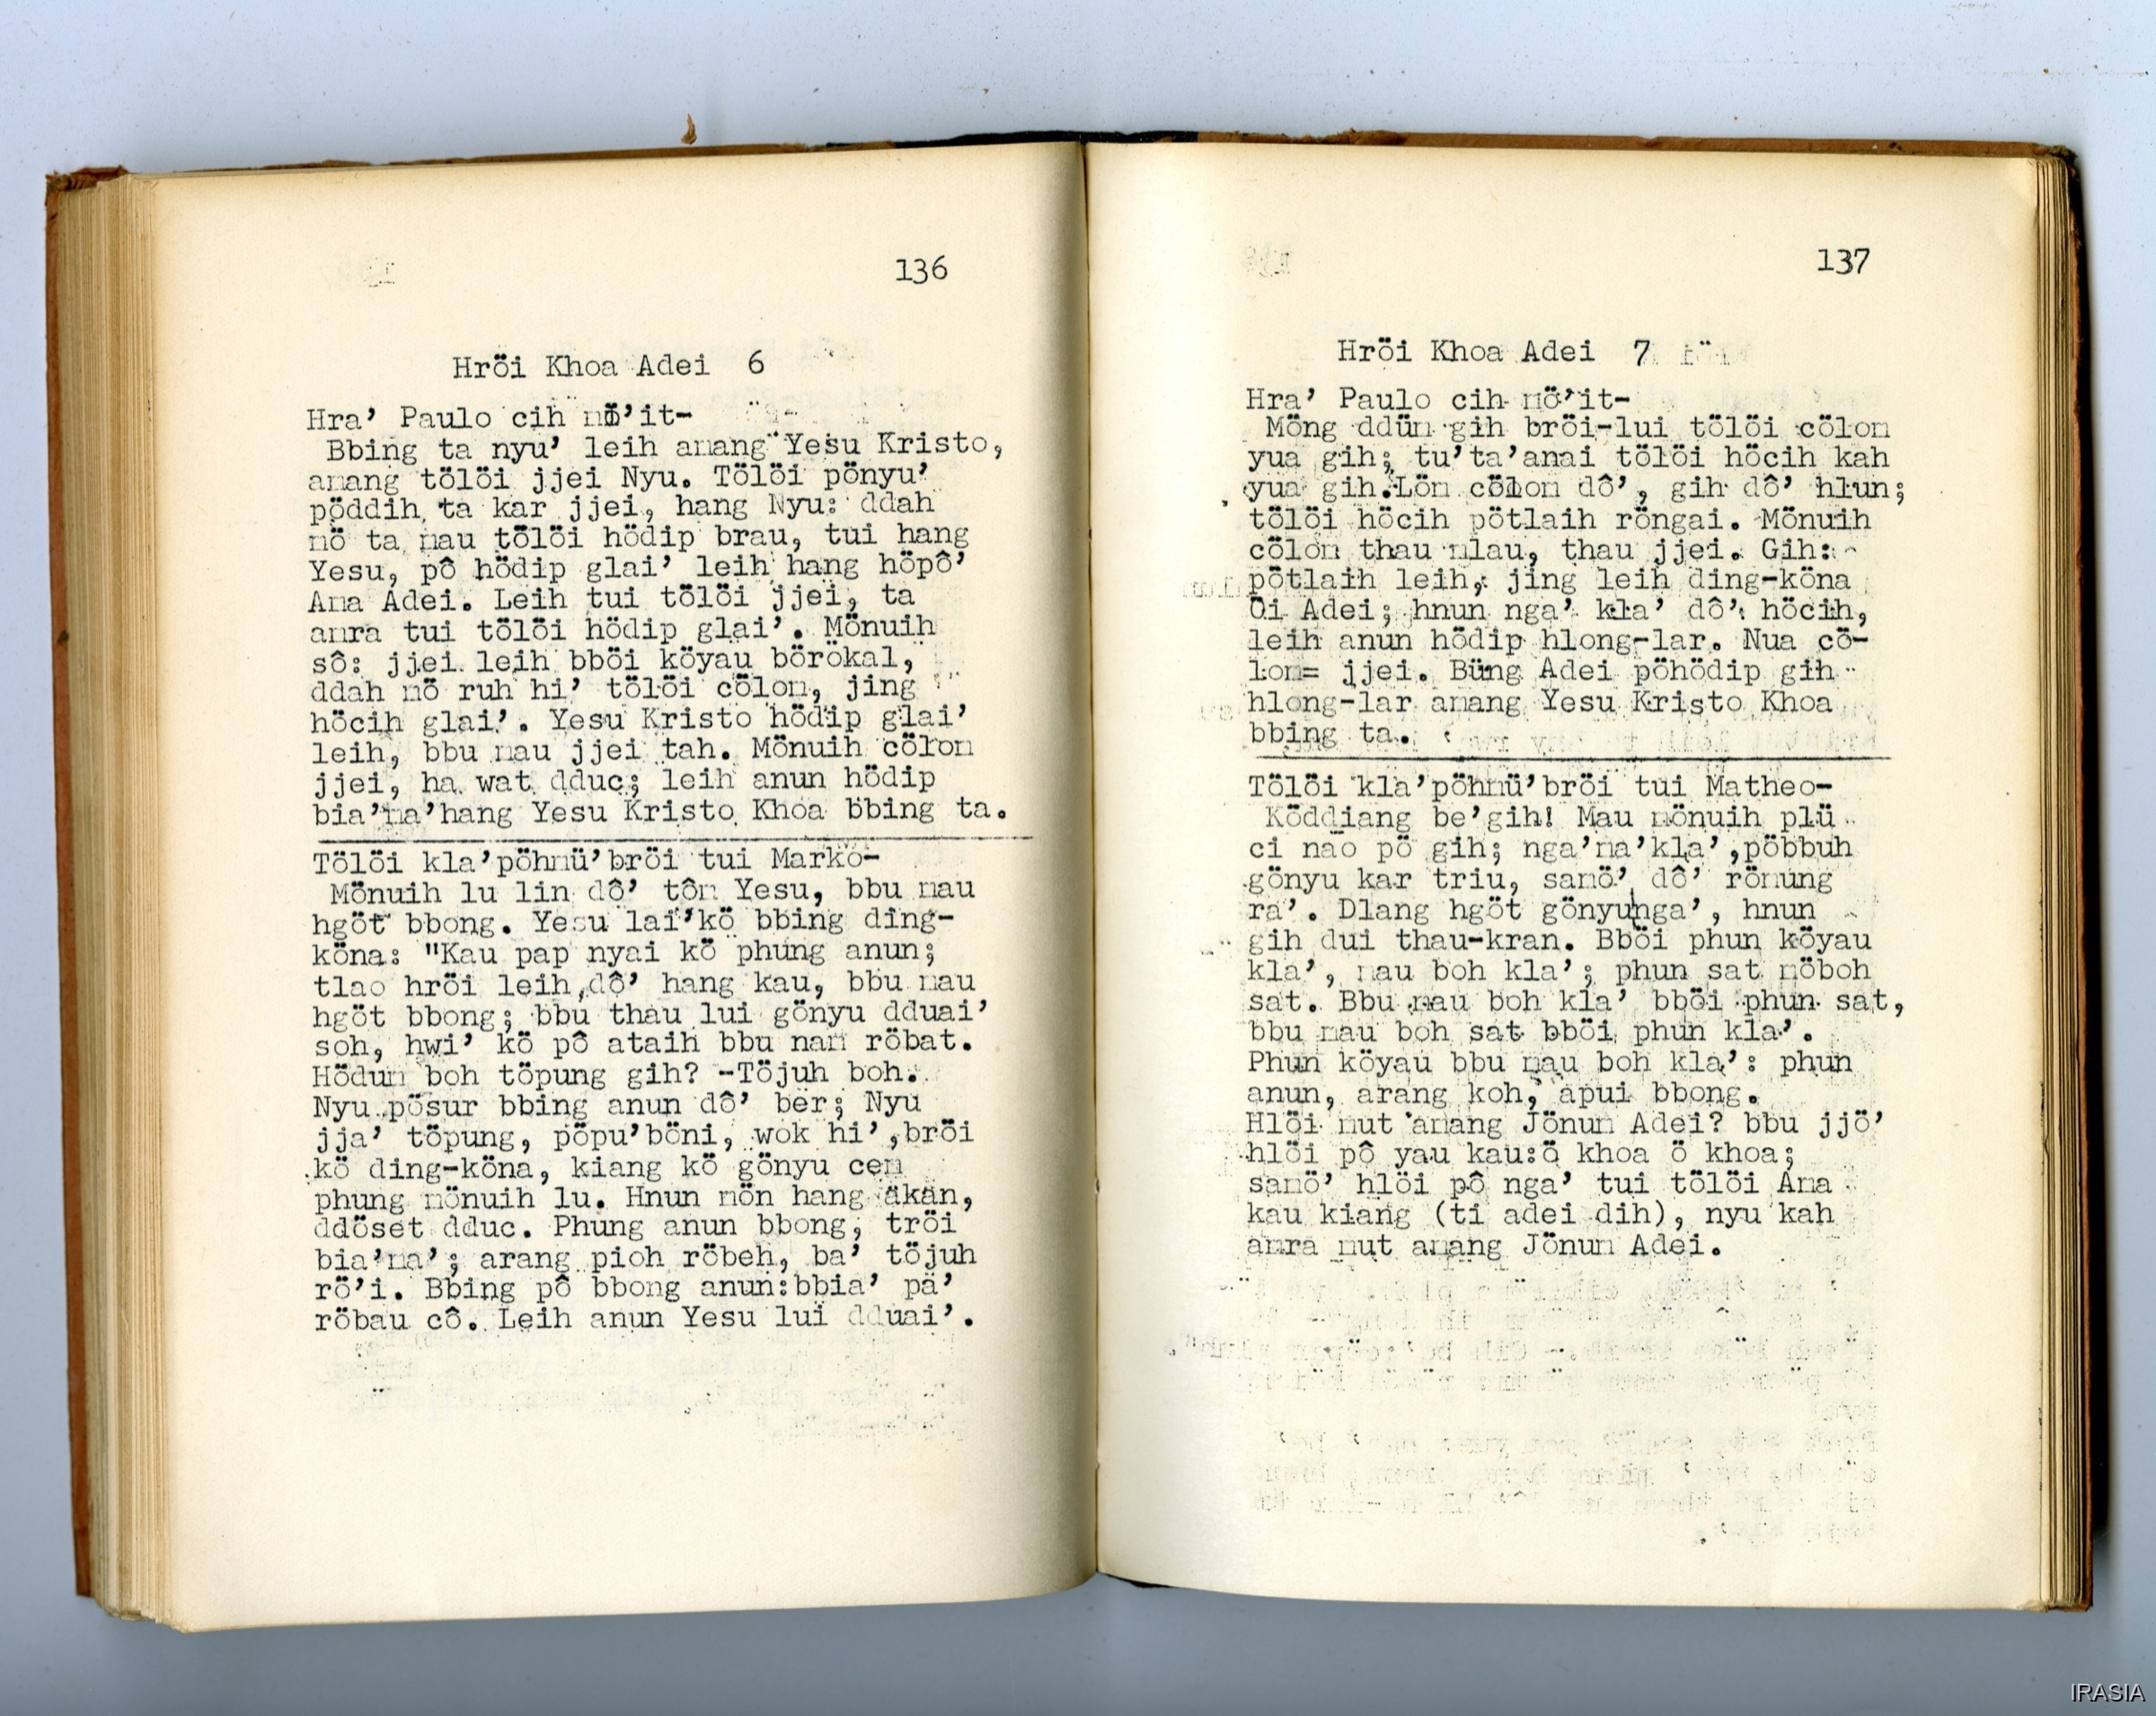 136
Hröi Khoa Adei 6
Hra’ Paulo cih nö’it-
Bbing ta nyu’ leih anang Yesu Kristo,
anang tölöi jjei Nyu. Tölöi pönyu’
pöddih ta kar jjei, hang Nyu: ddah
nö ta nau tölöi hödip brau, tui hang
Yesu, pô hödip glai’ leih hang höpô’
Ama Adei. Leih tui tölöi jjei, ta
amra tui tölöi hödip glai’. Mönuih
sô: jjei leih bböi köyau börökal,
ddah nö ruh hi’ tölöi cölom, jing
höcih glai’. Yesu Kristo hödip glai’
leih, bbu nau jjei tah. Mönuih cölom
jjei, ha wat dduc; leih anun hödip
bia’ma’hang Yesu Kristo Khoa bbing ta.
Tölöi kla’pöhmü’bröi tui Marko-
Mönuih lu lin dô’ tôm Yesu, bbu mau
hgöt bbong. Yesu lai’kö bbing ding-
köna: "Kau pap nyai kö phung anun;
tlao hröi leih,dô’ hang kau, bbu mau
hgöt bbong; bbu thau lui gönyu dduai’
soh, hwi’ kö pô ataih bbu nan röbat.
Hödum boh töpung gih? -Töjuh boh.
Nyu pösur bbing anun dô’ ber; Nyu
jja’ töpung, pöpu’böni, wok hi’,bröi
kö ding-köna, kiang kö gönyu cem
phung mönuih lu. Hnun mön hang äkän,
ddöset dduc. Phung anun bbong, tröi
bia’ma’; arang pioh röbeh, ba’ töjuh
rö’i. Bbing pô bbong anun:bbia’ pä’
röbau cô. Leih anun Yesu lui dduai’.
137
Hröi Khoa Adei 7
Hra’ Paulo cih nö’it-
Möng ddün gih bröi-lui tölöi cölom
yua gih; tu’ta’anai tölöi höcih kah
yua gih.Löm cölom dô’, gih dô’ hlun;
tölöi höcih pötlaih röngai. Mönuih
cölom thau mlau, thau jjei. Gih:
pötlaih leih, jing leih ding-köna
Oi Adei; hnun nga’ kla’ dô’: höcih,
leih anun hödip hlong-lar. Nua cö-
lom= jjei. Büng Adei pöhödip gih
hlong-lar anang Yesu Kristo Khoa
bbing ta.
Tölöi kla’pöhmü’bröi tui Matheo-
Köddiang be’gih! Mau mönuih plü
ci nao pö gih; nga’ma’kla’,pöbbuh
gönyu kar triu, samö’ dô’ römung
ra’. Dlang hgöt gönyu nga’, hnun
gih dui thau-kran. Bböi phun köyau
kla’, mau boh kla’; phun sat möboh
sat. Bbu mau boh kla’ bböi phun sat,
bbu mau boh sat bböi phun kla’.
Phun köyau bbu mau boh kla’: phun
anun, arang koh, apui bbong.
Hlöi mut anang Jönum Adei? bbu jjö’
hlöi pô yau kau:ö khoa ö khoa;
samö’ hlöi pô nga’ tui tölöi Ama
kau kiang (ti adei dih), nyu kah
amra mut anang Jönum Adei.
IRASIA